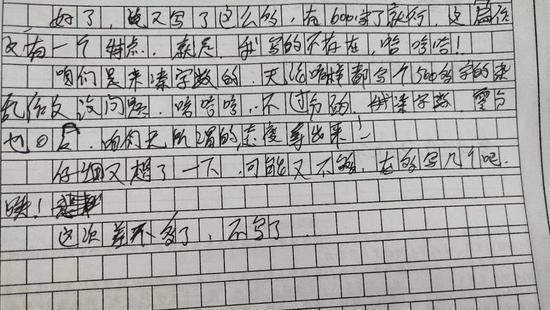 好了,也又写了这么多,在600字了就行,这篇作
文有一个特点,就是,我写的不存在,哈哈哈!
咱们是来凑字数的,天 咱 都写个500多字的来
乱 文没问题,哈哈哈,不过分的,凑字数 零分
也 ,咱们无所谓的态度拿出来!
仔细又想了一下,可能又不够,在多写几个吧.
哎!
这次差不多了,不写了.